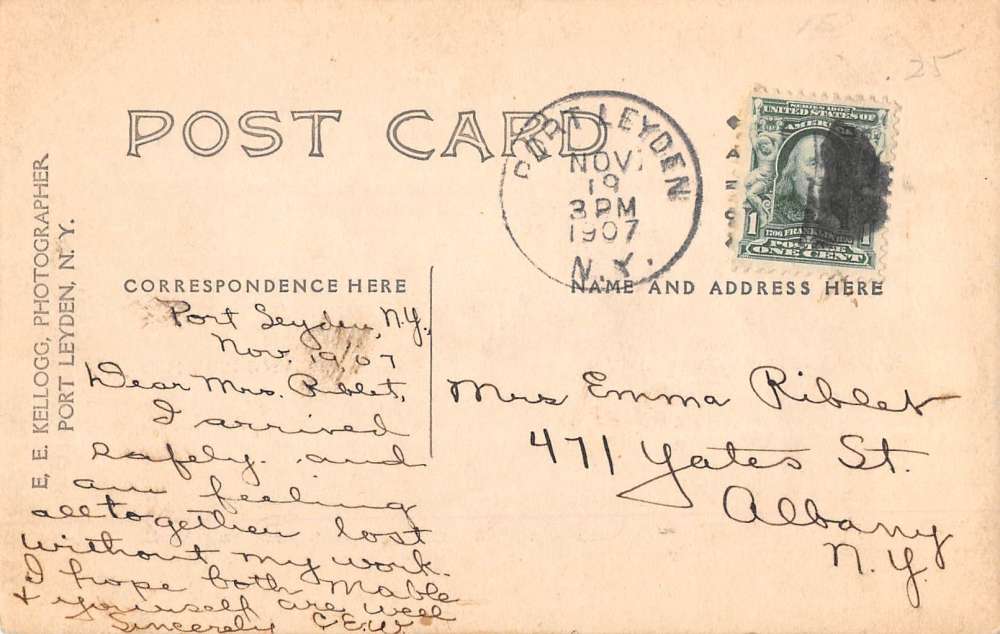 25
POST CARD
PORT LEYDEN
NOV.
19
3 PM
1907
N.Y.
SERIES 1902
UNITED STATES OF
AMERICA
1 1
FRANKLIN
POSTAGE
ONE CENT
E. E. KELLOGG, PHOTOGRAPHER
PORT LEYDEN, N. Y.
CORRESPONDENCE HERE
NAME AND ADDRESS HERE
Port Leyden, N.Y.,
Nov. 19/07
Dear Mrs. Riblet,
I arrived
safely and
am feeling
alltogether lost
without my work.
I hope both Mable
& yourself are well
Sincerely C.E.W.
Mrs Emma Riblet
471 Yates St.
Albany
N.Y.